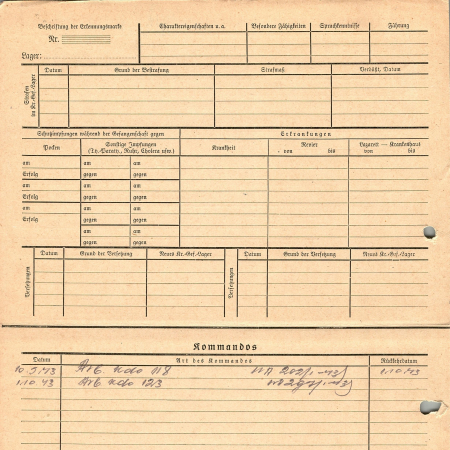 Beschriftung der Erkennungsmarke
Nr.
Lager:
Charaktereigenschaften u.a.
Besondere Fähigkeiten
Sprachkenntnisse
Führung
Strafen im Kr.-Gef.-Lager
Datum
Grund der Bestrafung
Strafmaß
Verbüßt, Datum
Schutzimpfungen während der Gefangenschaft gegen
Erkrankungen
Pocken
Sonstige Impfungen
(Ty.-Paraty., Ruhr, Cholera usw.)
Krankheit
Revier
von bis
Lazarett — Krankenhaus
von bis
am am am
Erfolg gegen gegen
am am am
Erfolg gegen gegen
am am am
Erfolg gegen gegen
am am
gegen gegen
Versetzungen
Datum
Grund der Versetzung
Neues Kr.-Gef.-Lager
Versetzungen
Datum
Grund der Versetzung
Neues Kr.-Gef.-Lager
Kommandos
Datum
Art des Kommandos
Rückkehrdatum
10.5.43 Arb. Kdo 118 1.10.43
1.10.43 Arb. Kdo 123